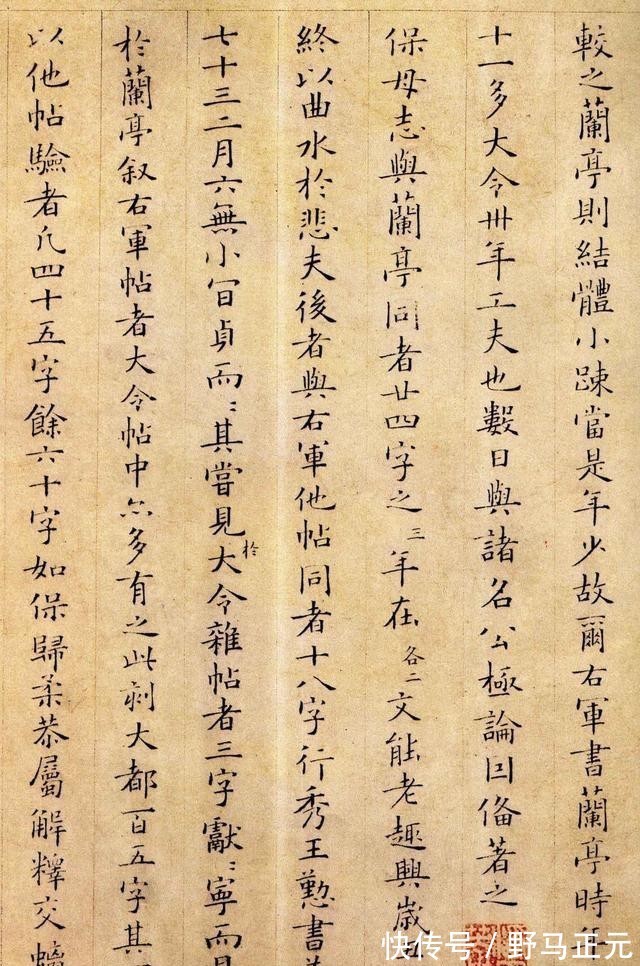 較之蘭亭則結體小疎當是年少故爾右軍書蘭亭時年
十一多大令卅年工夫也數日與諸名公極論因俻著之
保母志與蘭亭同者廿四字之三年在各二文能老趣興歲
終以曲水於悲夫後者與右軍他帖同者十八字行秀王懃書
七十三二月六無小百貞而〻其嘗見於大令雜帖者三字獻〻寧而
於蘭亭叙右軍帖者大令帖中亦多有之此刻大都百五字其
以他帖驗者凡四十五字餘六十字如保歸柔恭屬解釋交螭
快传号 / 野马正元